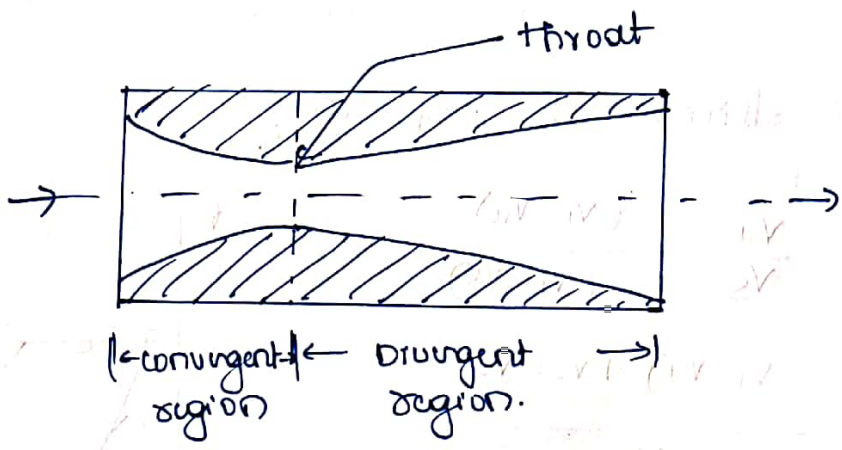 throat
convergent
region
Divergent
region.